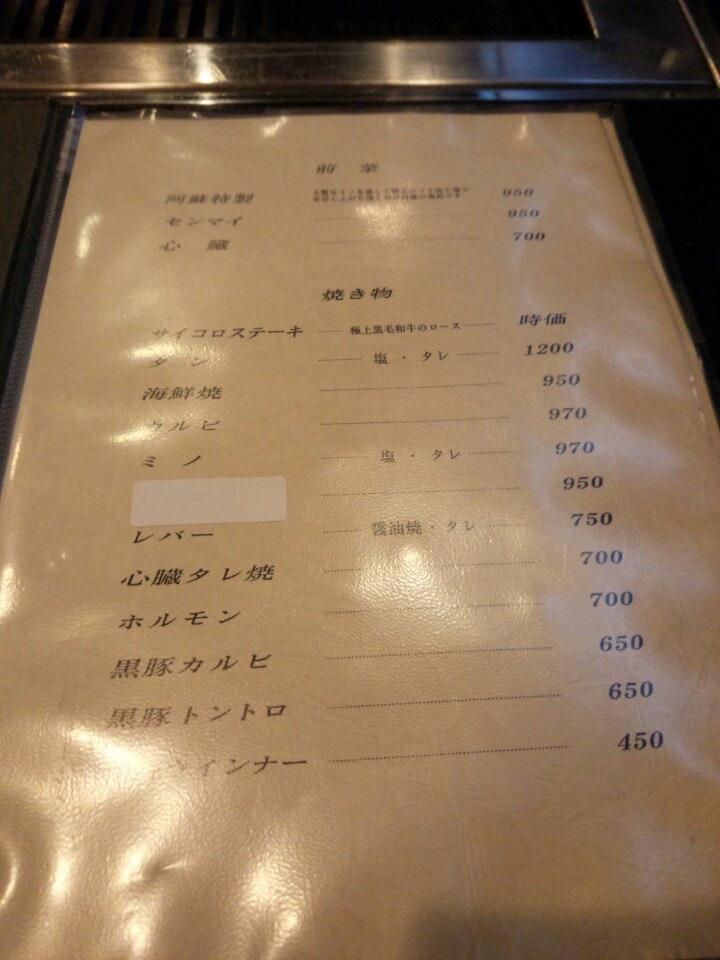 前 菜
阿蘇特製 950
センマイ 950
心 臓 700
焼き物
サイコロステーキ 極上黒毛和牛のロース 時価
タン 塩・タレ 1200
海鮮焼 950
カルビ 970
ミノ 塩・タレ 970
950
レバー 醤油焼・タレ 750
心臓タレ焼 700
ホルモン 700
黒豚カルビ 650
黒豚トントロ 650
ウインナー 450